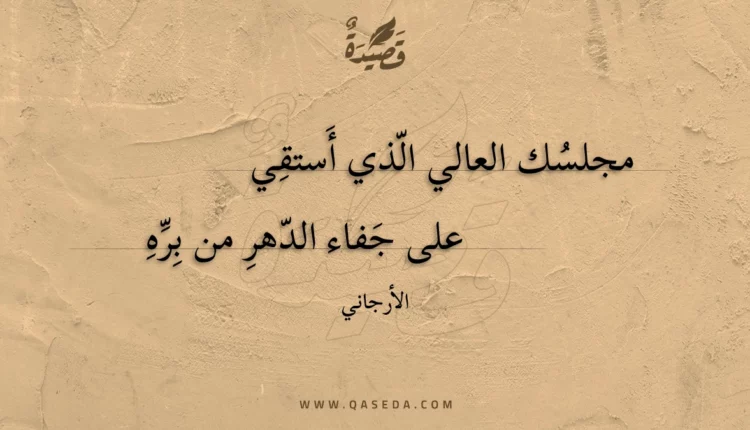 قَصِيْدَةٌ
مجلسُك العالي الّذي أَستقِي
على جَفاء الدّهرِ من بِرِّهِ
الأرجاني
WWW.QASEDA.COM